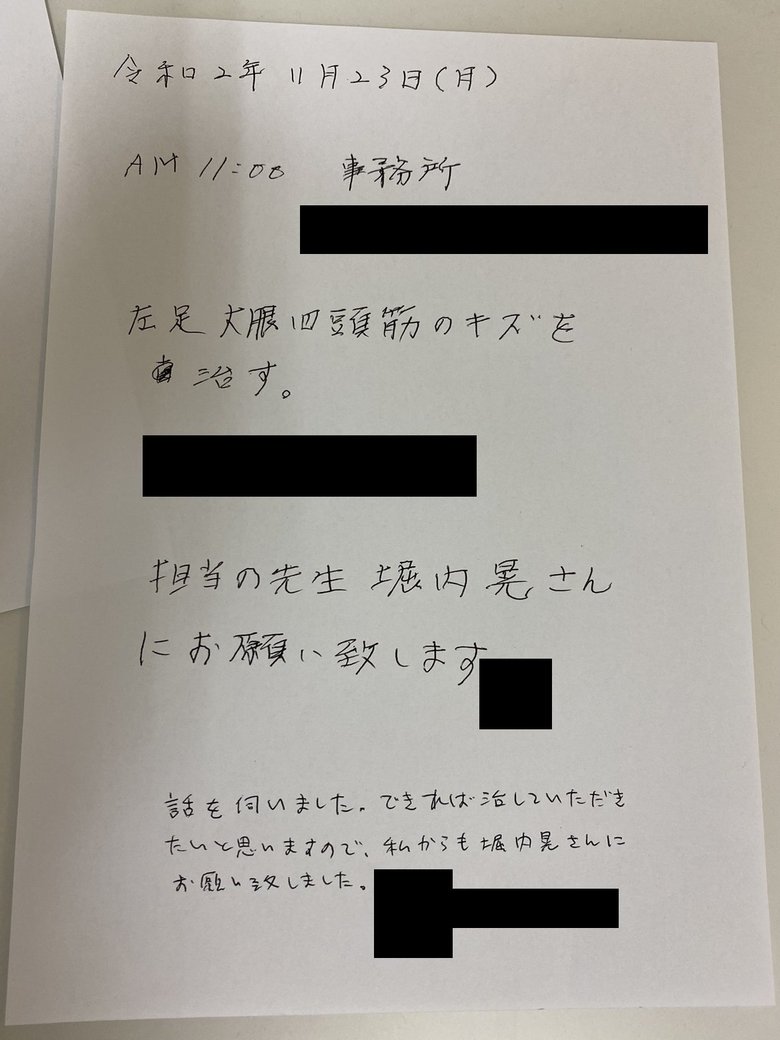 令和2年11月23日(月)
AM 11:00 事務所
左足 大腿四頭筋のキズを
治す。
担当の先生 堀内晃さん
にお願い致します
話を伺いました。できれば治していただき
たいと思いますので、私からも堀内晃さんに
お願い致しました。